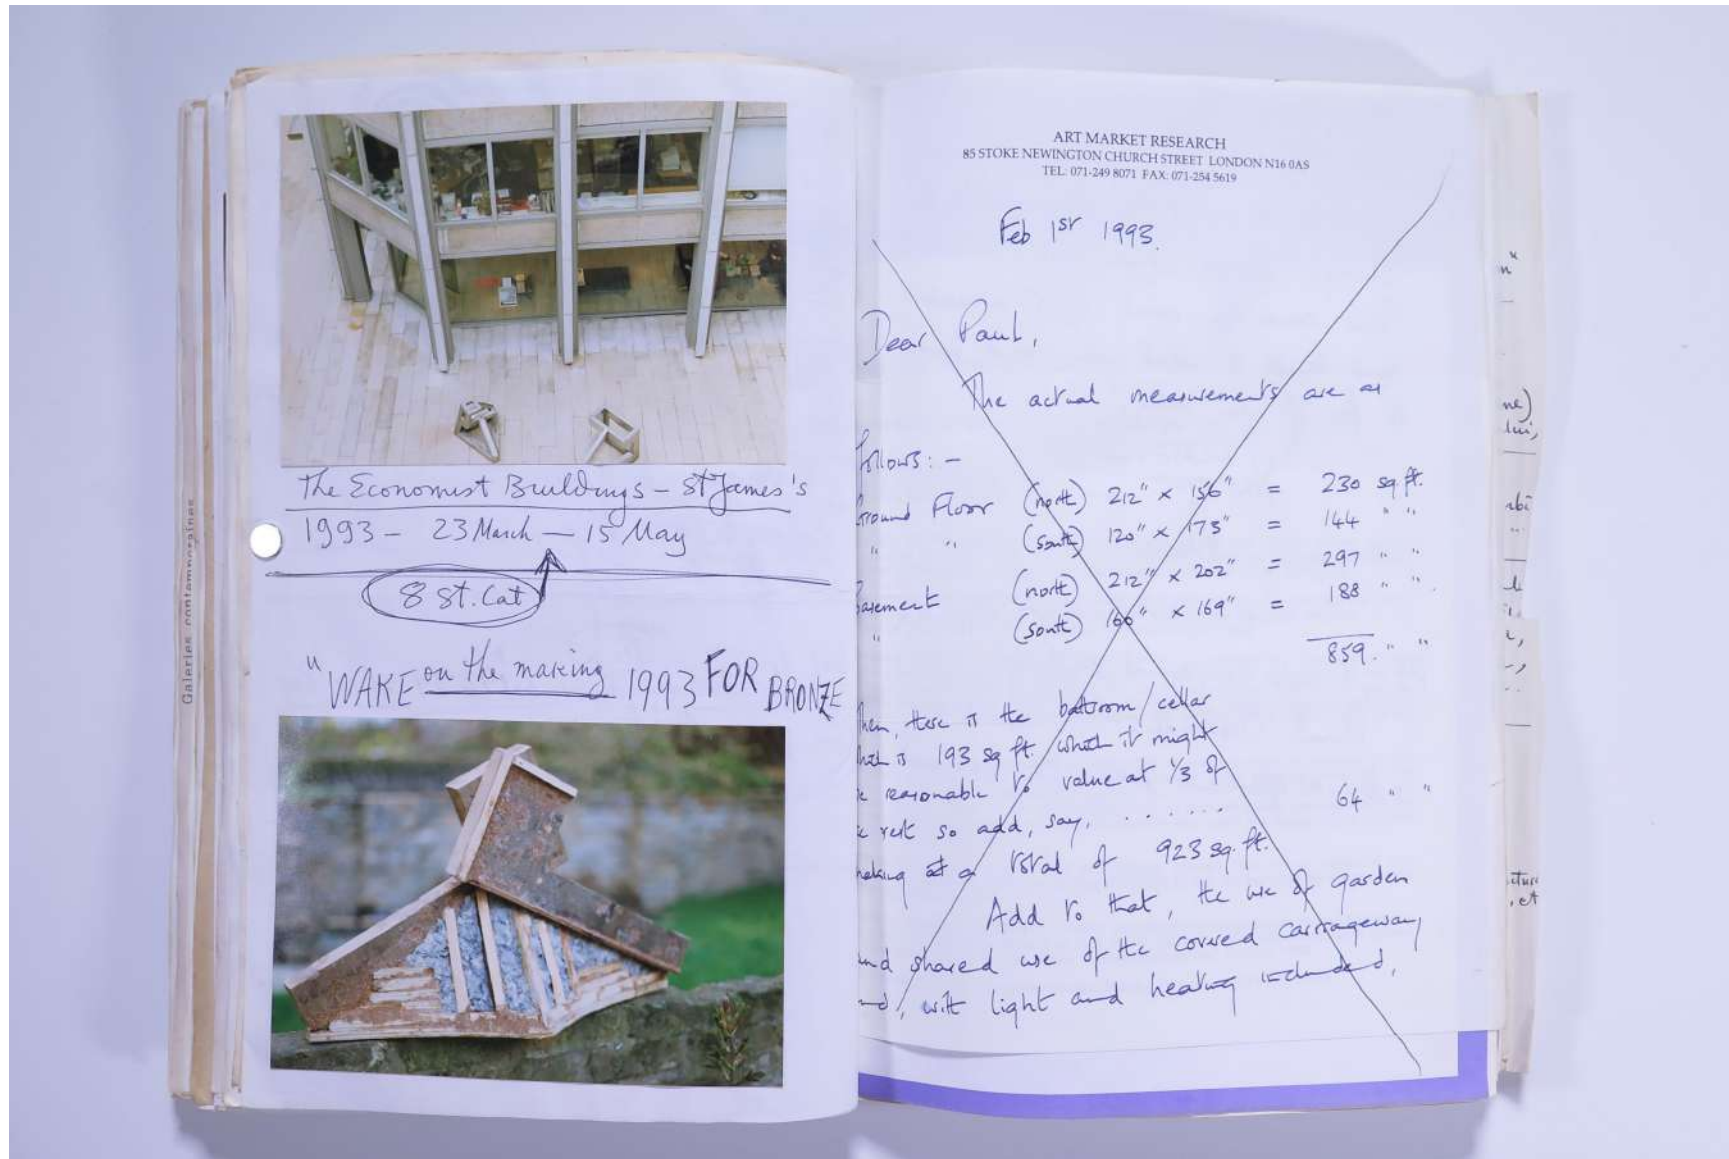 Galeries contemporaines
The Economist Buildings – St James's
1993 – 23 March – 15 May
8 St. Cat
"WAKE on the making 1993 FOR BRONZE
ART MARKET RESEARCH
85 STOKE NEWINGTON CHURCH STREET LONDON N16 0AS
TEL: 071-249 8071 FAX: 071-254 5619
Feb 1st 1993.
Dear Paul,
The actual measurements are as
follows: –
Ground Floor (north) 212" × 156" = 230 sq ft.
" " (south) 120" × 173" = 144 " "
Basement (north) 212" × 202" = 297 " "
" (south) 160" × 169" = 188 " "
859. " "
Then, there is the bathroom/cellar
which is 193 sq ft. which it might
be reasonable to value at 1/3 of
rest so add, say, . . . . . . 64 " "
making at a total of 923 sq. ft.
Add to that, the use of garden
and shared use of the covered carriageway
and, with light and heating included,
n"
ne)
lui,